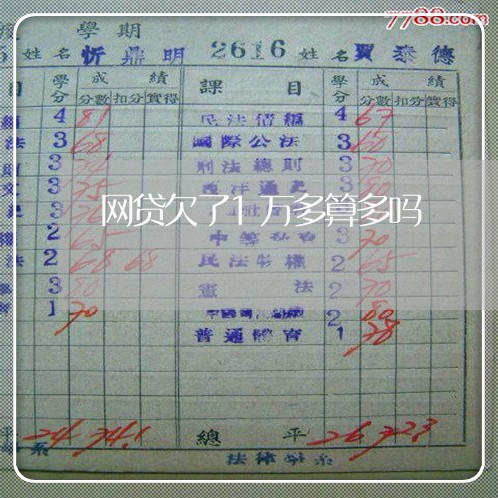 7788.com
學期
姓名 忻鼎明 2616 姓名 賈泰德
目 學分 成績 課目 學分 成績
分數 扣分 實得 分數 扣分 實得
4 81 民法債編 4 67
法 3 68 國際公法 3 60
3 刑法總則 3 70
文 3 75 西洋通史 3
3
網贷欠了1万多算多吗
2 65 3 70
法 2 68 68 民法物權 2 65
3 80 憲法 2 70
1 70 2 80
普通體育 1 78
平 24 74.1 總平 26 72.3
系 法律學系